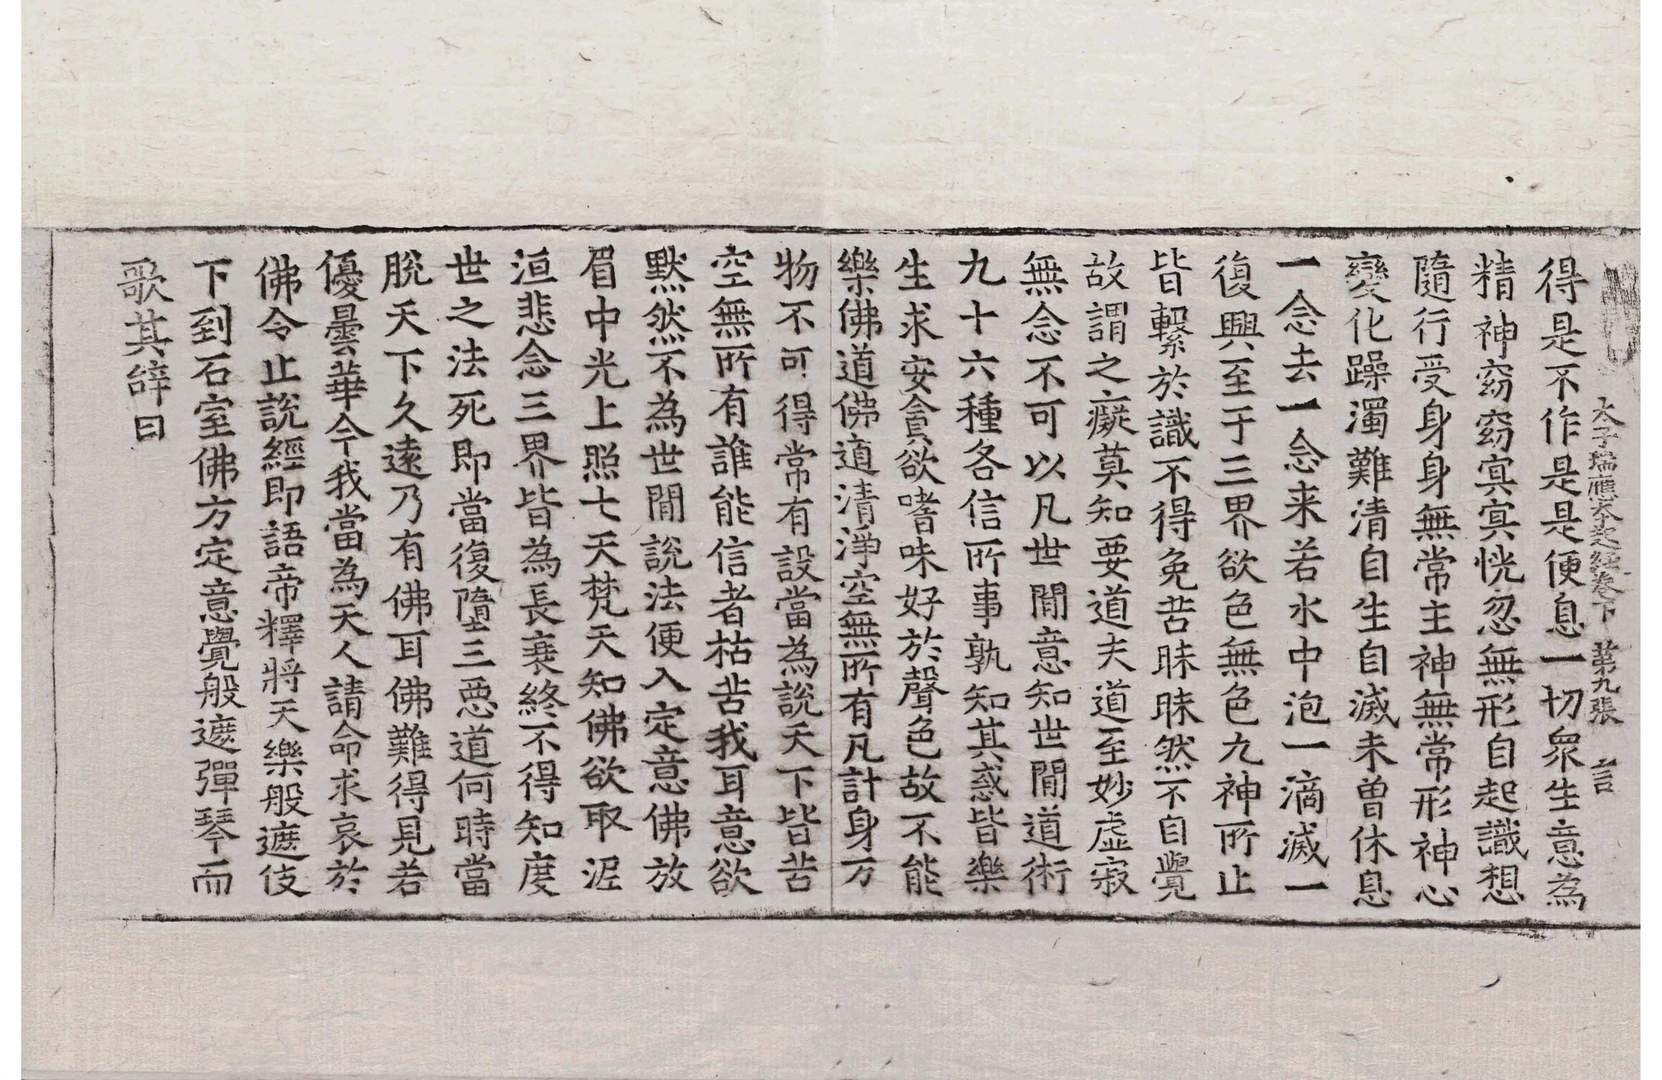 太子瑞應本起經卷下 第九張 言
得是不作是是便息一切衆生意為
精神窈窈冥冥恍忽無形自起識想
隨行受身身無常主神無常形神心
變化躁濁難清自生自滅未曾休息
一念去一念来若水中泡一滴滅一
復興至于三界欲色無色九神所止
皆繫於識不得免苦昧昧然不自覺
故謂之癡莫知要道夫道至妙虛寂
無念不可以凡世間意知世間道術
九十六種各信所事孰知其惑皆樂
生求安貪欲嗜味好於聲色故不能
樂佛道佛道清淨空無所有凡計身万
物不可得常有設當為說天下皆苦
空無所有誰能信者枯苦我耳意欲
默然不為世間說法便入定意佛放
眉中光上照七天梵天知佛欲取泥
洹悲念三界皆為長衰終不得知度
世之法死即當復墮三惡道何時當
脫天下久遠乃有佛耳佛難得見若
優曇華今我當為天人請命求哀於
佛令止說經即語帝釋將天樂般遮伎
下到石室佛方定意覺般遮彈琴而
歌其辞曰